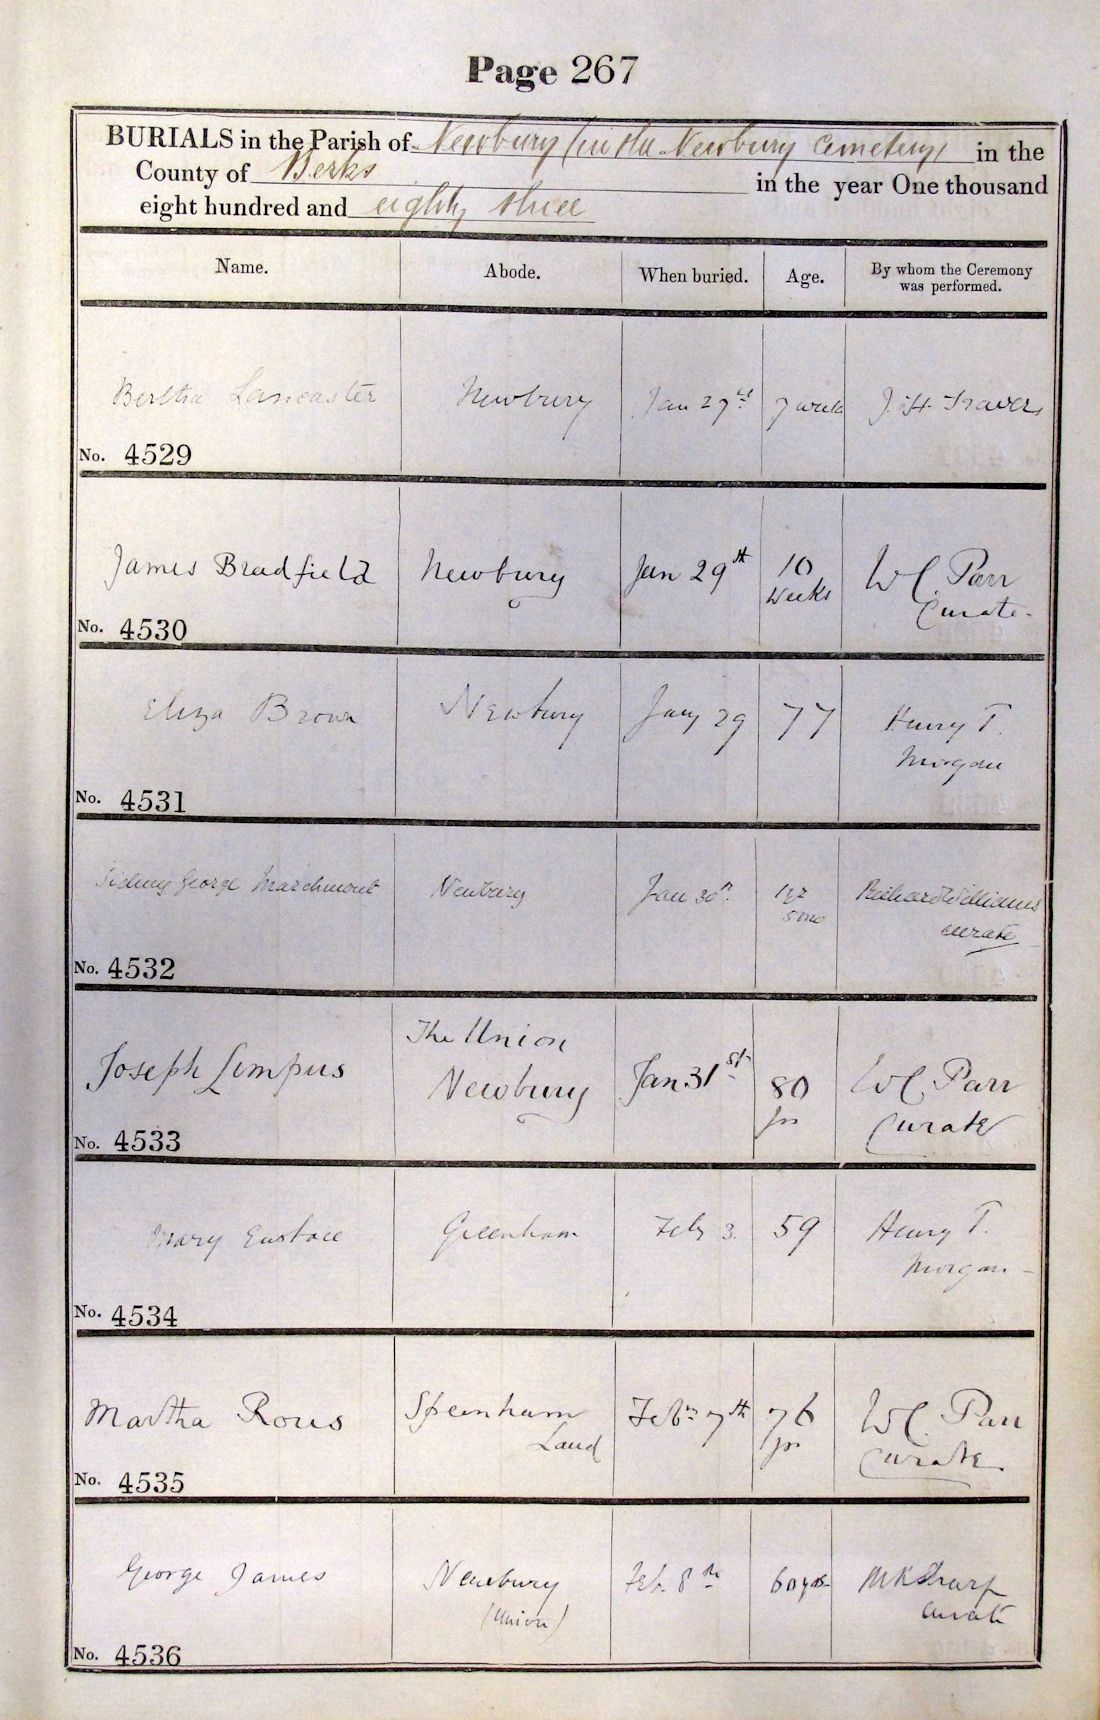 Page 267
BURIALS in the Parish of Newbury (in the Newbury Cemetery) in the
County of Berks in the year One thousand
eight hundred and eighty three
Name. Abode. When buried. Age. By whom the Ceremony was performed.
Bertha Lancaster Newbury Jan 27th 7 weeks J. H. Travers
No. 4529
James Bradfield Newbury Jan 29th 10 Weeks W C Parr Curate
No. 4530
Eliza Brown Newbury Jany 29 77 Henry T. Morgan
No. 4531
Sidney George Marchmont Newbury Jan 30th 1 yr 5 mo Richard Williams curate
No. 4532
Joseph Limpus The Union Newbury Jan 31st 80 yrs W C Parr Curate
No. 4533
Mary Eustace Greenham Feby 3. 59 Henry T. Morgan
No. 4534
Martha Rous Speenham Land Feby 7th 76 yrs W C Parr Curate
No. 4535
George James Newbury (Union) Feb. 8th Curate
No. 4536